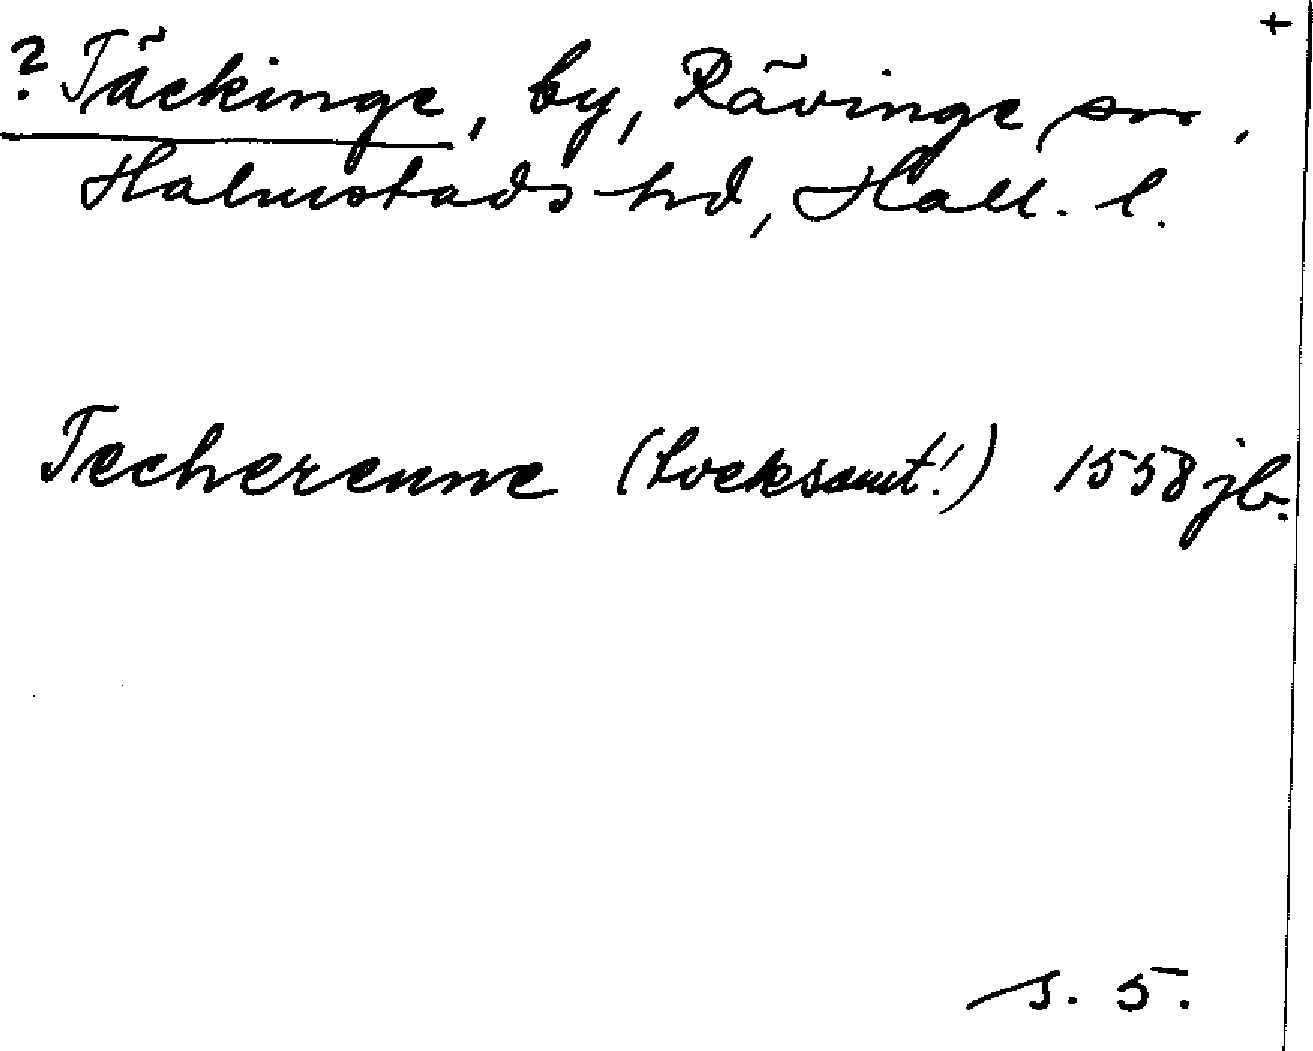 +
? Täckinge, by, Rävinge sn,
Halmstads hd, Hall. l.
Techerenne (Locksamt!) 1558 jb.
s. 5.